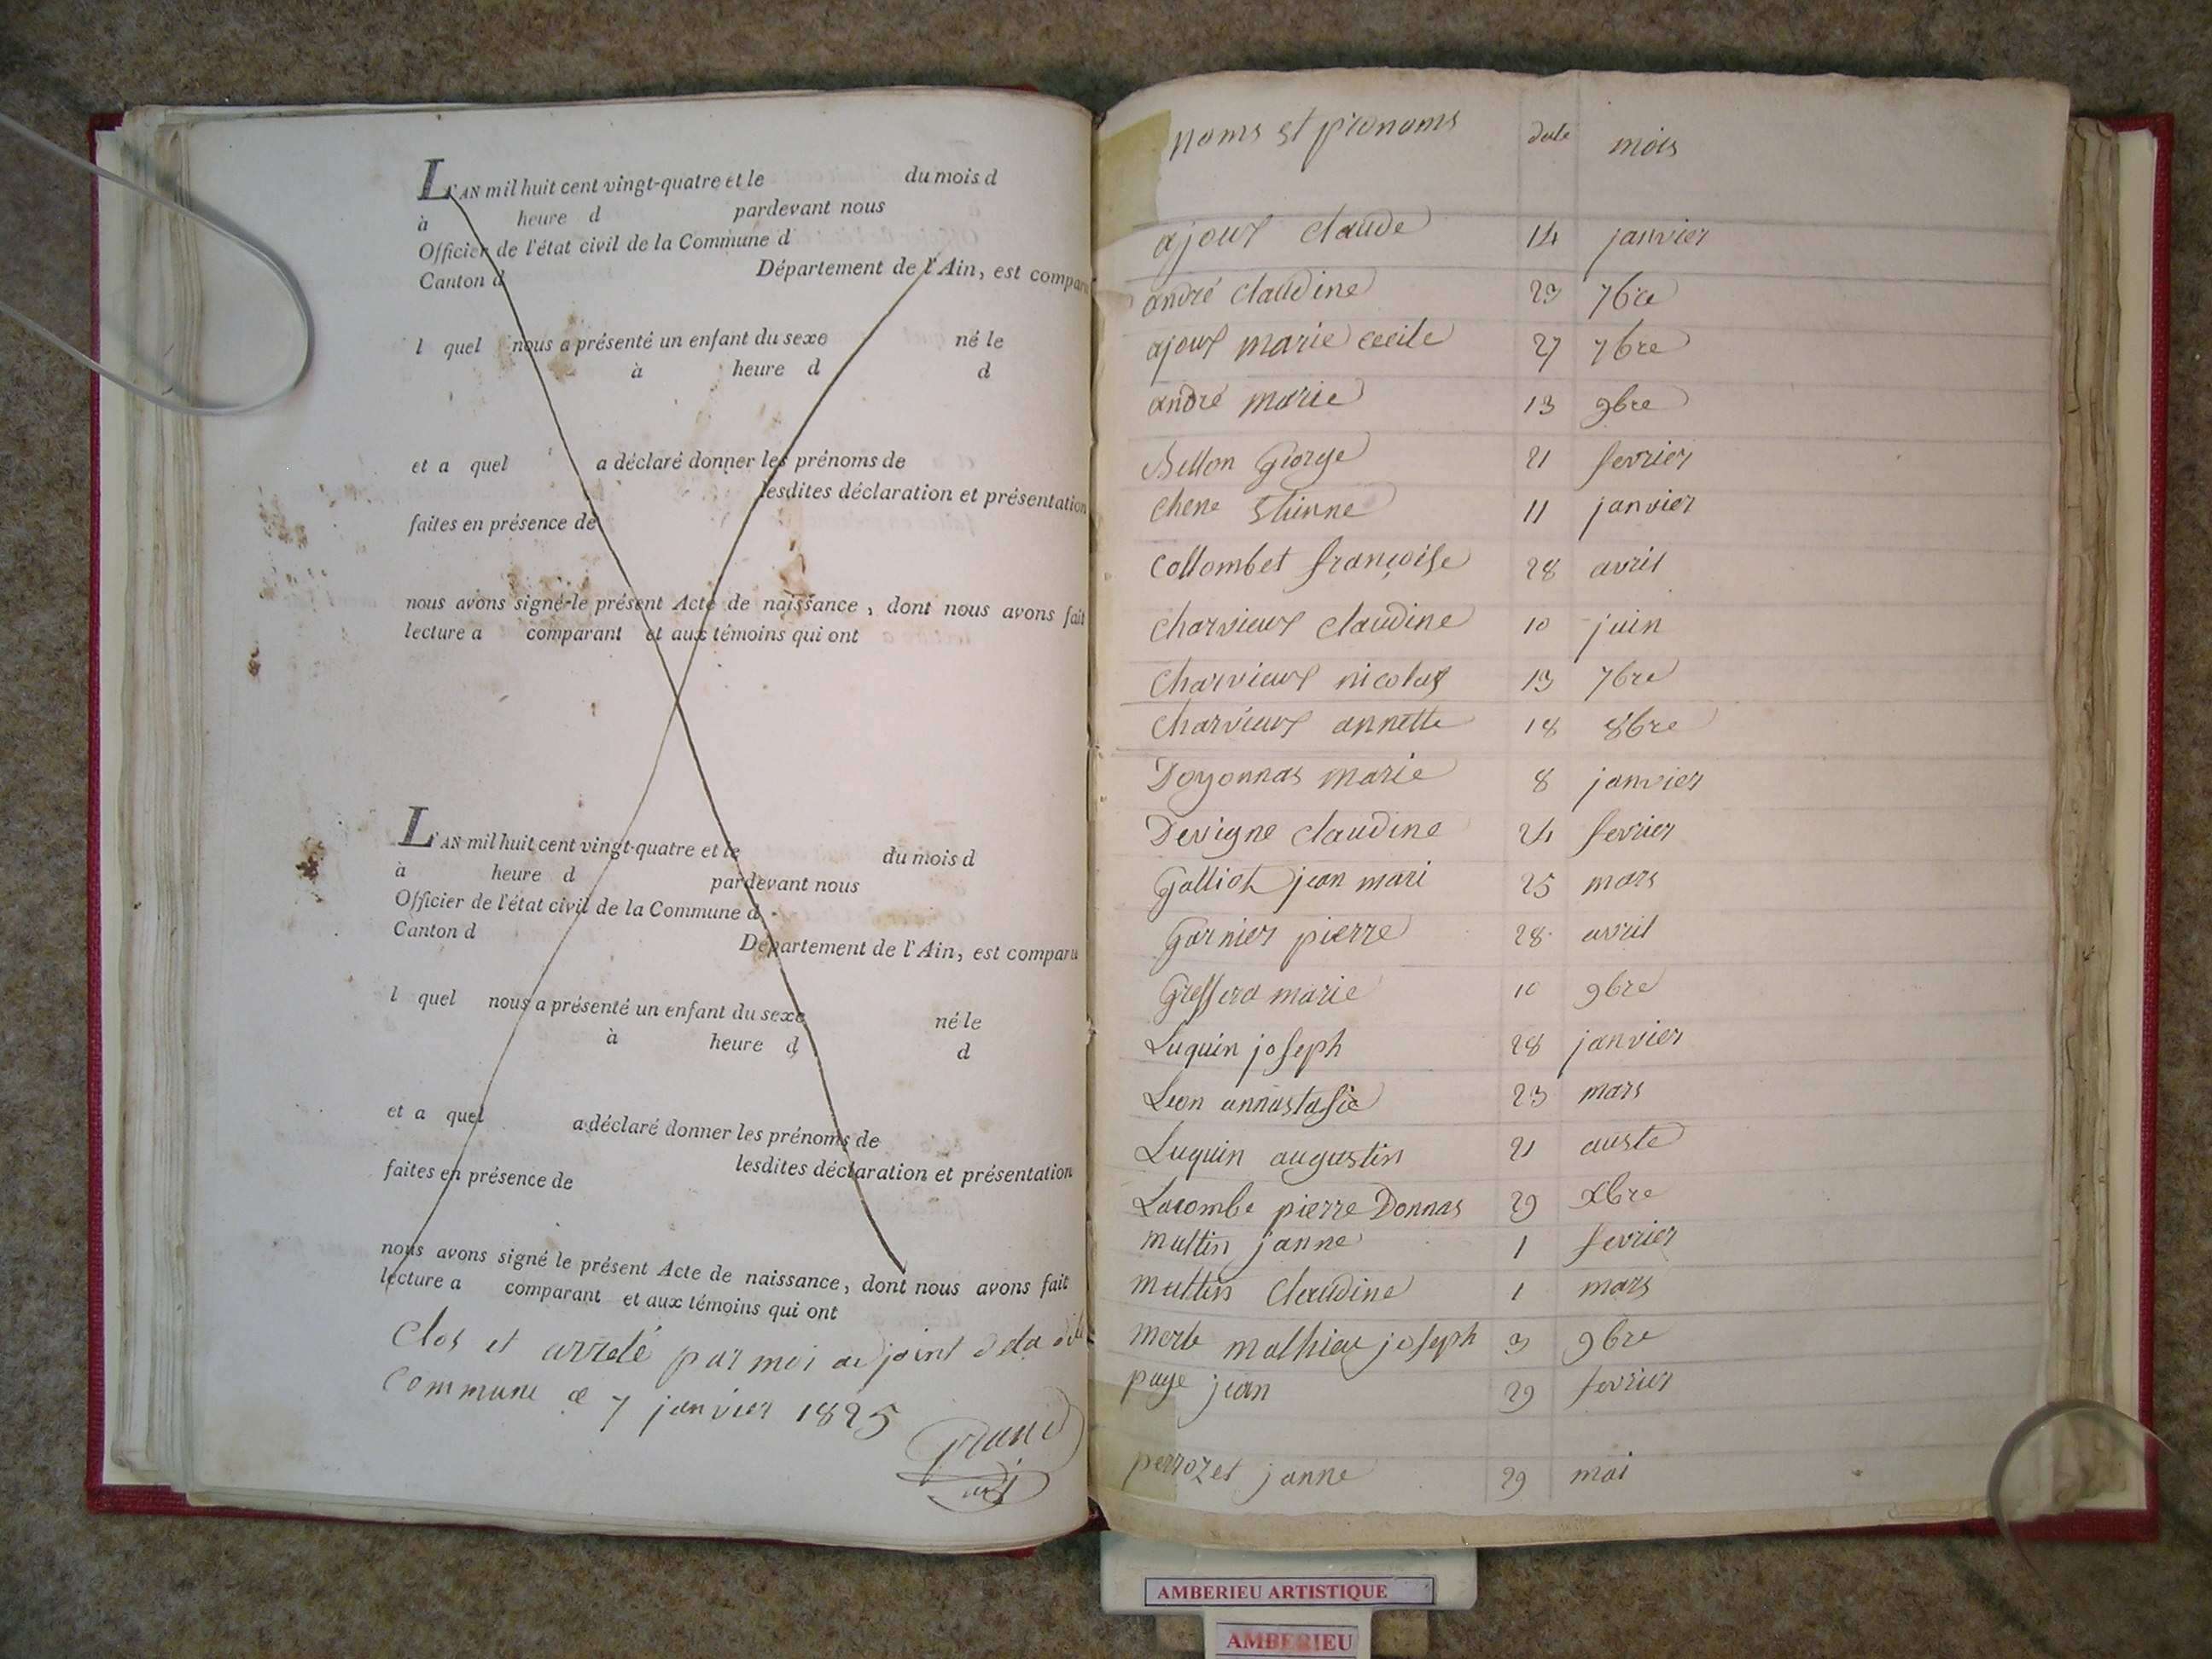 L'AN mil huit cent vingt-quatre et le du mois d
à heure d pardevant nous
Officier de l'état civil de la Commune d
Canton d Département de l'Ain, est comparu
l quel nous a présenté un enfant du sexe né le
à heure d d
et a quel a déclaré donner les prénoms de
lesdites déclaration et présentation
faites en présence de
nous avons signé le présent Acte de naissance, dont nous avons fait
lecture a comparant et aux témoins qui ont
L'AN mil huit cent vingt-quatre et le du mois d
à heure d pardevant nous
Officier de l'état civil de la Commune d
Canton d Département de l'Ain, est comparu
l quel nous a présenté un enfant du sexe né le
à heure d d
et a quel a déclaré donner les prénoms de
lesdites déclaration et présentation
faites en présence de
nous avons signé le présent Acte de naissance, dont nous avons fait
lecture a comparant et aux témoins qui ont
Clos et arreté par moi adjoint de la dite
Commune ce 7 janvier 1825
noms et prenoms date mois
ajoux claude 14 janvier
andré claudine 23 7bre
ajoux marie cecile 27 7bre
andré marie 13 9bre
Bellon George 21 fevrier
chene Etienne 11 janvier
Collombet françoise 28 avril
charvieux claudine 10 juin
Charvieux nicolas 13 7bre
Charvieux annette 18 8bre
Doyonnas marie 8 janvier
Devigne claudine 24 fevrier
Galliot jean mari 25 mars
Garnier pierre 28 avril
marie 10 9bre
Luquin joseph 28 janvier
Leon annastasie 23 mars
Luquin augustin 21 auste
Lacombe pierre Donnas 29 Xbre
multin janne 1 fevrier
multin Claudine 1 mars
merle mathieu joseph 3 9bre
page jean 29 fevrier
perrozet janne 29 mai
AMBERIEU ARTISTIQUE
AMBERIEU